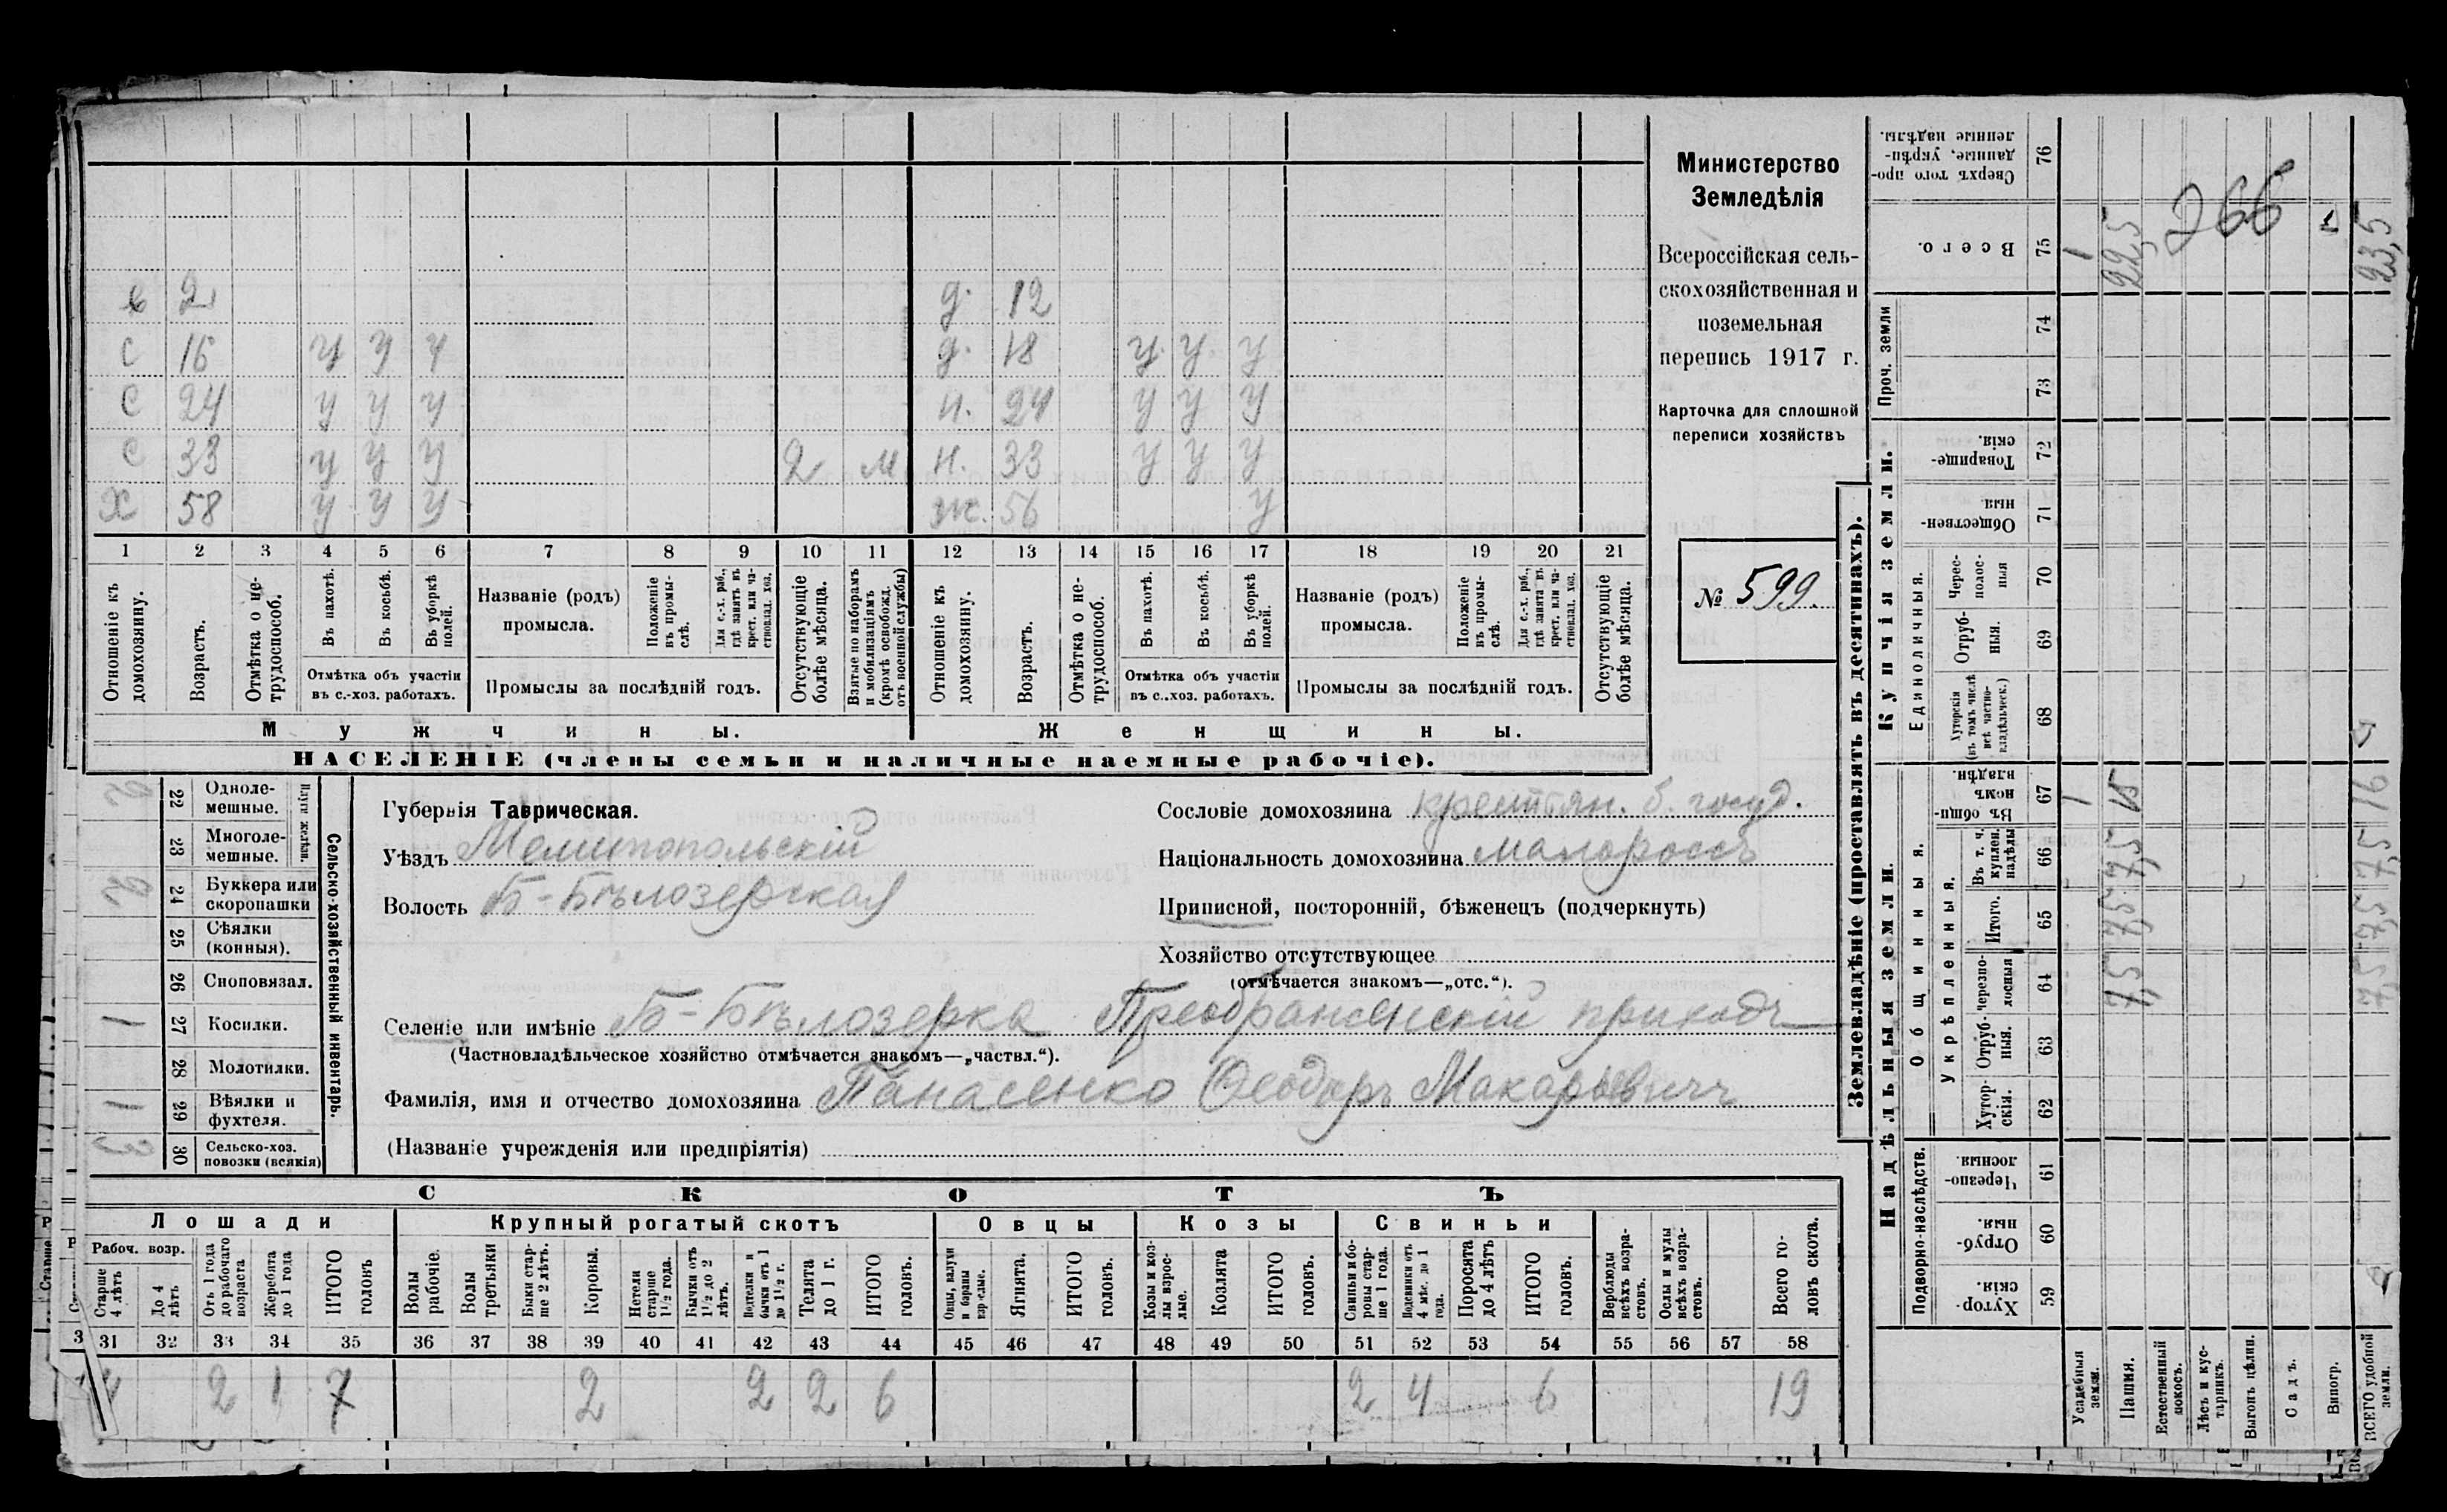 в 2 д. 12
с 16 у у у д. 18 у. у у
с 24 у у у н. 24 у у у
с 33 у у у 2 м н. 33 у у у
х 58 у у у ж. 56 у
1 2 3 4 5 6 7 8 9 10 11 12 13 14 15 16 17 18 19 20 21
Отношеніе къ домохозяину.
Возрастъ.
Отмѣтка о не-
трудоспособ.
Въ пахотѣ.
Въ косьбѣ.
Въ уборкѣ полей.
Отмѣтка объ участіи
въ с.-хоз. работахъ.
Названіе (родъ)
промысла.
Положеніе
въ промы-
слѣ.
Для с.-х. раб.,
гдѣ занятъ въ
крест. или ча-
стновлад. хоз.
Промыслы за послѣдній годъ.
Отсутствующіе
болѣе мѣсяца.
Взятые по наборамъ
и мобилизаціямъ
(кромѣ освобожд.
отъ военной службы)
Отношеніе къ
домохозяину.
Возрастъ.
Отмѣтка о не-
трудоспособ.
Въ пахотѣ.
Въ косьбѣ.
Въ уборкѣ
полей.
Отмѣтка объ участіи
въ с.-хоз. работахъ.
Названіе (родъ)
промысла.
Положеніе
въ промы-
слѣ.
Для с.-х. раб.,
гдѣ занята въ
крест. или ча-
стновлад. хоз.
Промыслы за послѣдній годъ.
Отсутствующіе
болѣе мѣсяца.
Мужчины. Женщины.
НАСЕЛЕНІЕ (члены семьи и наличные наемные рабочіе).
Министерство
Земледѣлія
Всероссійская сель-
скохозяйственная и
поземельная
перепись 1917 г.
Карточка для сплошной
переписи хозяйствъ
№ 599.
Сельско-хозяйственный инвентарь.
Плуги желѣзн.
22 Одноле-
мешные.
23 Многоле-
мешные.
24 Буккера или
скоропашки
25 Сѣялки
(конныя).
26 Сноповязал.
1 27 Косилки.
28 Молотилки.
1 29 Вѣялки и
фухтеля.
3 30 Сельско-хоз.
повозки (всякія)
Губернія Таврическая.
Уѣздъ Мелитопольскій
Волость Б-Бѣлозерская
Сословіе домохозяина крестьян. б. госуд.
Національность домохозяина малороссъ
Приписной, посторонній, бѣженецъ (подчеркнуть)
Хозяйство отсутствующее
(отмѣчается знакомъ—„отс.“).
Селеніе или имѣніе Б-Бѣлозерка Преображенскій приходъ
(Частновладѣльческое хозяйство отмѣчается знакомъ—„частвл.“).
Фамилія, имя и отчество домохозяина Панасенко Ѳеодоръ Макарьевичъ
(Названіе учрежденія или предпріятія)
СКОТЪ
Лошади Крупный рогатый скотъ Овцы Козы Свиньи
Рабоч. возр.
Старше
4 лѣтъ
До 4
лѣтъ
Отъ 1 года
до рабочаго
возраста
Жеребята
до 1 года
ИТОГО
головъ
Волы
рабочіе.
Волы
третьяки
Быки стар-
ше 2 лѣтъ.
Коровы.
Нетели
старше
1½ года.
Бычки отъ
1½ до 2
лѣтъ.
Подтелки и
бычки отъ 1
до 1½ г.
Телята
до 1 г.
ИТОГО
головъ.
Овцы, валухи
и бараны
взрослые.
Ягнята.
ИТОГО
головъ.
Козы и коз-
лы взрос-
лые.
Козлята
ИТОГО
головъ.
Свиньи и бо-
ровы стар-
ше 1 года.
Подсвинки отъ
4 мѣс. до 1
года.
Поросята
до 4 лѣтъ
ИТОГО
головъ.
Верблюды
всѣхъ возра-
стовъ.
Ослы и мулы
всѣхъ возра-
стовъ.
Всего го-
ловъ скота.
31 32 33 34 35 36 37 38 39 40 41 42 43 44 45 46 47 48 49 50 51 52 53 54 55 56 57 58
4 2 1 7 2 2 2 6 2 4 6 19
Землевладѣніе (проставлять въ десятинахъ).
Надѣльныя земли.
Купчія земли.
Проч. земли
Подворно-наслѣдств.
Общинныя.
Укрѣпленныя.
Единоличныя.
Хутор-
скія. 59
Отруб-
ныя. 60
Черезпо-
лосныя. 61
Хутор-
скія. 62
Отруб-
ныя. 63
Черезпо-
лосныя 64
Итого. 65
Въ т. ч.
куплен.
надѣлы 66
Въ общи-
номъ
владѣн. 67
Хуторскія
(въ томъ числѣ
всѣ частно-
владѣльческ.) 68
Отруб-
ныя. 69
Черес-
полос-
ныя 70
Обществен-
ныя. 71
Товарище-
скія. 72
73
74
Всего. 75
Сверхъ того про-
данные, укрѣп-
ленные надѣлы. 76
Усадебныя
земли. 1 1
Пашня. 7,5 7,5 7,5 15 22,5
Естественный
покосъ.
Лѣсъ и кус-
тарникъ.
Выгонъ цѣлин.
Садъ.
Виногр.
ВСЕГО удобной
земли. 7,5 7,5 7,5 16 23,5
266